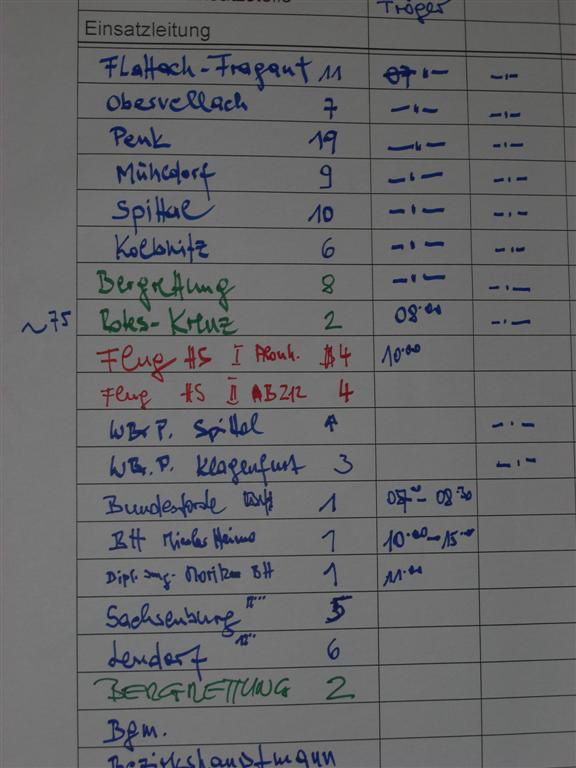 Träger
Einsatzleitung
Flattach-Fragant 11 07 -"- -"-
Obervellach 7 -"- -"-
Penk 19 -"- -"-
Mühldorf 9 -"- -"-
Spittal 10 -"- -"-
Kolbnitz 6 -"- -"-
Bergrettung 8 -"- -"-
~75 Rotes-Kreuz 2 08.00 -"-
Flug HS I 4 10.00
Flug HS II AB212 4
WBr.P. Spittal -"-
WBr.P. Klagenfurt 3 -"-
Bundesforste 1 07 - 08.30
BH 1 10.00-15.00
Dipl. Ing. BH 1 11.00
Sachsenburg 5
Lendorf 6
BERGRETTUNG 2
Bgm.
Bezirkshauptmann